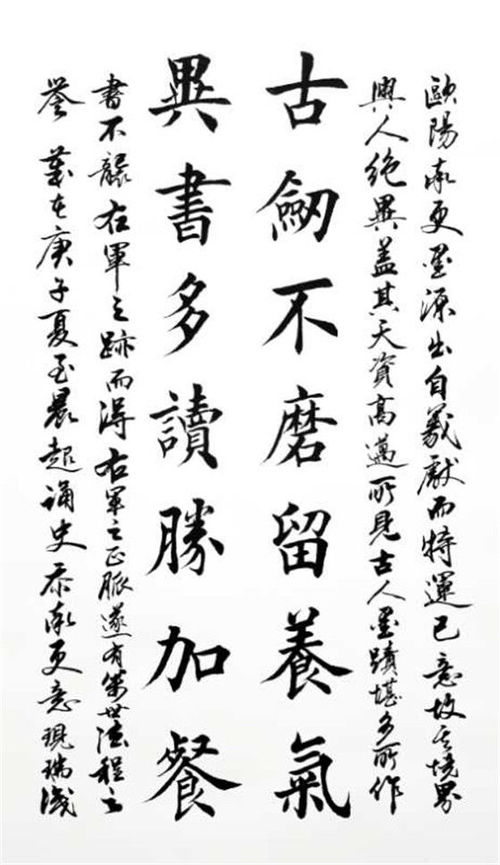 歐陽率更墨源出自羲獻而特運己意故其境界
與人絕異蓋其天資高邁所見古人墨蹟堪多所作
古劒不磨留養氣
異書多讀勝加餐
書不襲右軍之跡而得右軍之正脈遂有萬世法程之
譽 歲在庚子夏至晨起誦史 率更意現瑞識